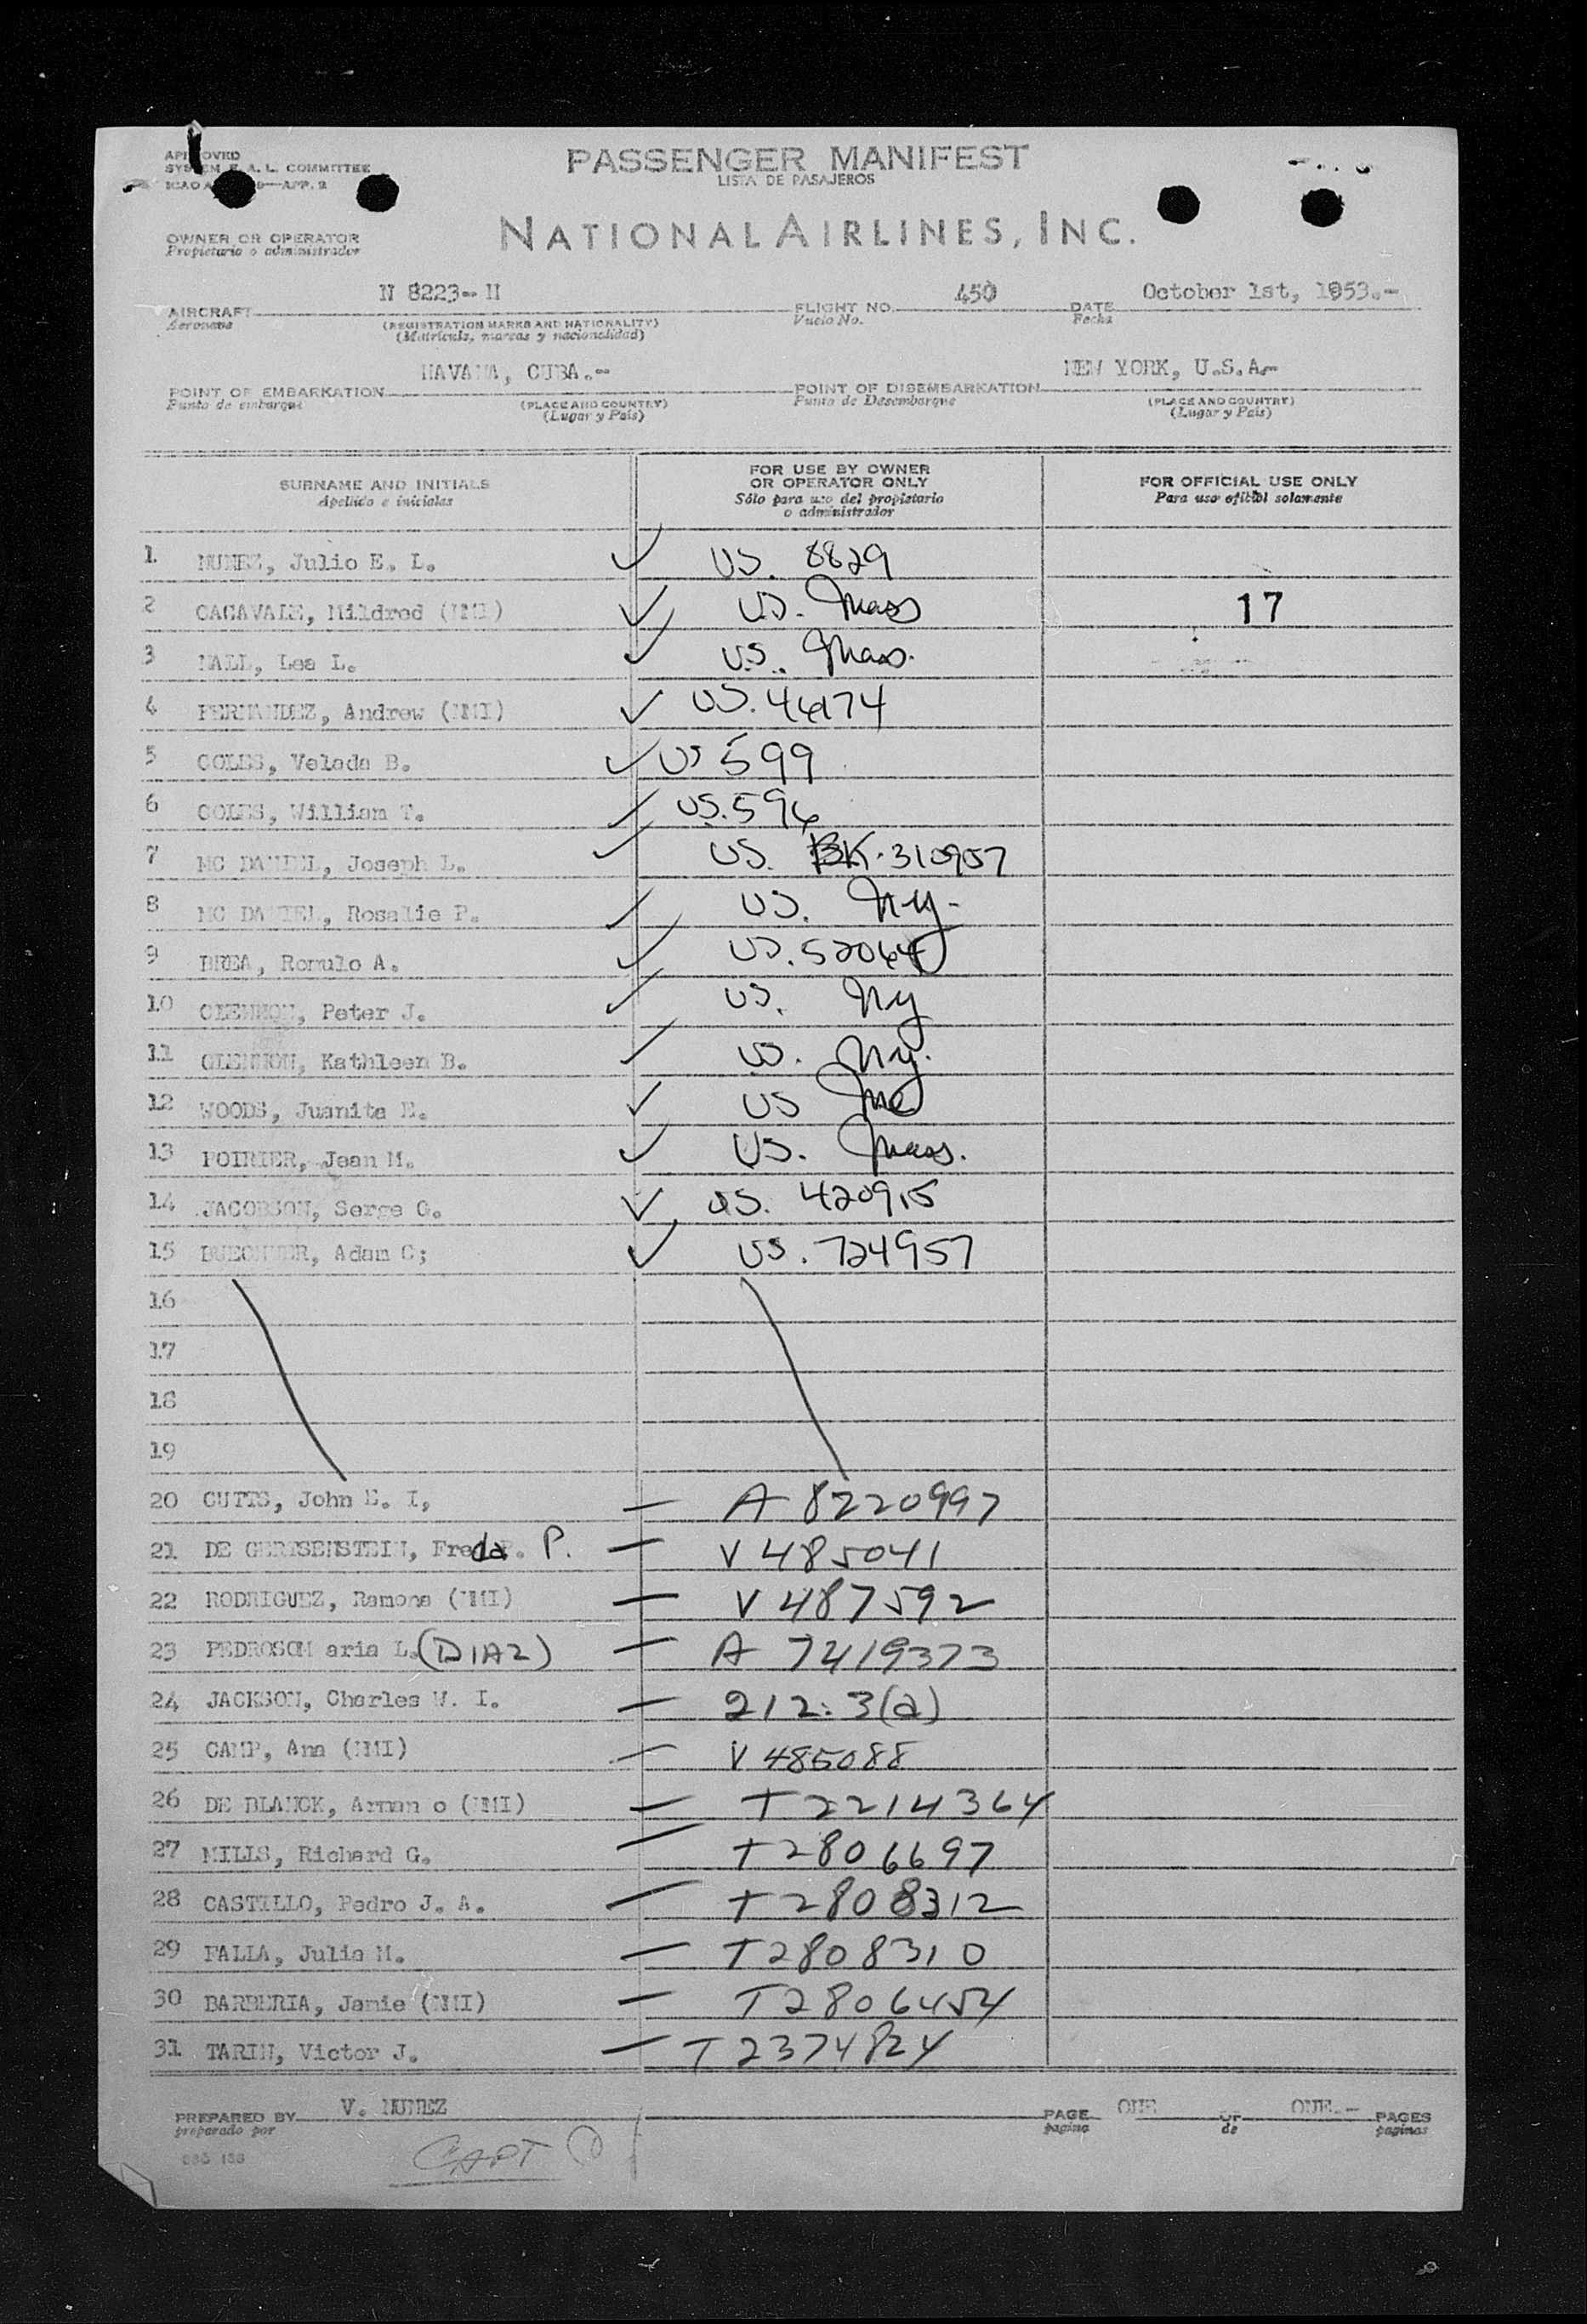 APPROVED
SYSTEM F. A. L. COMMITTEE
PASSENGER MANIFEST
LISTA DE PASAJEROS
NATIONAL AIRLINES, INC.
OWNER OR OPERATOR
Propietario o administrador
AIRCRAFT N 8223-H FLIGHT NO. 450 DATE October 1st, 1953.-
Aeronave (REGISTRATION MARKS AND NATIONALITY) Vuelo No. Fecha
(Matrícula, marcas y nacionalidad)
POINT OF EMBARKATION HAVANA, CUBA.- POINT OF DISEMBARKATION NEW YORK, U.S.A.-
Punto de embarque (PLACE AND COUNTRY) Punto de Desembarque (PLACE AND COUNTRY)
(Lugar y País) (Lugar y País)
SURNAME AND INITIALS FOR USE BY OWNER OR OPERATOR ONLY FOR OFFICIAL USE ONLY
Apellido e iniciales Sólo para uso del propietario o administrador Para uso oficial solamente
1 NUNEZ, Julio E. L. ✓ US. 8829
2 CACAVALE, Mildred (NMI) ✓ US. Mass 17
3 HALL, Lea L. ✓ US. Mass.
4 FERNANDEZ, Andrew (NMI) ✓ US. 46174
5 COLES, Veleda B. ✓ US 599
6 COLES, William T. ✓ US. 596
7 MC DANIEL, Joseph L. ✓ US. BK. 310907
8 MC DANIEL, Rosalie P. ✓ US. NY-
9 BREA, Romulo A. ✓ US. 52064
10 GLENNON, Peter J. ✓ US. NY
11 GLENNON, Kathleen B. ✓ US. NY.
12 WOODS, Juanita E. ✓ US Me
13 POIRIER, Jean M. ✓ US. Mass.
14 JACOBSON, Serge G. ✓ US. 420915
15 BUECHNER, Adam C; ✓ US. 724957
16
17
18
19
20 CUTTS, John E. I, — A 8220997
21 DE GERTSENSTEIN, Freda P. — V 485041
22 RODRIGUEZ, Ramona (NMI) — V 487592
23 PEDROSOM aria L. (DIAZ) — A 7419373
24 JACKSON, Charles W. I. — 212.3(a)
25 CAMP, Ana (NMI) — V 485088
26 DE BLANCK, Arman o (NMI) — T 2214364
27 MILLS, Richard G. — T 2806697
28 CASTILLO, Pedro J. A. — T 2808312
29 FALLA, Julia M. — T 2808310
30 BARBERIA, Jamie (NMI) — T 2806454
31 TARIN, Victor J. — T 2374824
PREPARED BY V. NUNEZ PAGE ONE OF ONE.- PAGES
preparado por pagina de paginas
CAPT